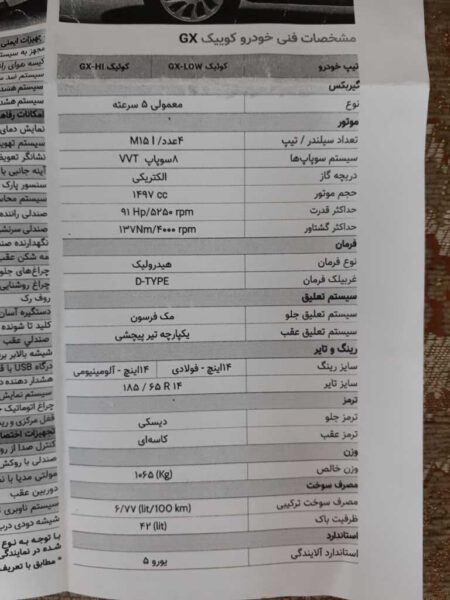 مشخصات فنی خودرو کوییک GX
تیپ خودرو کوئیک GX-LOW کوئیک GX-HI
گیربکس
نوع معمولی ۵ سرعته
موتور
تعداد سیلندر / تیپ ۴عدد/ M15 I
سیستم سوپاپ‌ها ۸سوپاپ VVT
دریچه گاز الکتریکی
حجم موتور ۱۴۹۷ cc
حداکثر قدرت ۹۱ Hp/۵۲۵۰ rpm
حداکثر گشتاور ۱۳۷Nm/۴۰۰۰ rpm
فرمان
نوع فرمان هیدرولیک
غربیلک فرمان D-TYPE
سیستم تعلیق
سیستم تعلیق جلو مک فرسون
سیستم تعلیق عقب یکپارچه تیر پیچشی
رینگ و تایر
سایز رینگ ۱۴اینچ - فولادی ۱۴اینچ - آلومینیومی
سایز تایر ۱۸۵ / ۶۵ R ۱۴
ترمز
ترمز جلو دیسکی
ترمز عقب کاسه‌ای
وزن
وزن خالص ۱۰۶۵ (Kg)
مصرف سوخت
مصرف سوخت ترکیبی ۶/۷۷ (lit/100 km)
ظرفیت باک ۴۲ (lit)
استاندارد
استاندارد آلایندگی یورو ۵
تجهیزات ایمنی
مجهز به سیستم
کیسه هوای
سیستم
سیستم هشد
سیستم هشد
امکانات رفاهی
نمایش دمای
سیستم تهوی
نشانگر تعویض
آینه جانبی با
سنسور پارک
سیستم
صندلی راننده
صندلی سرنشی
نگهدارنده صند
مه شکن عقب
چراغ‌های جلو
چراغ روشنایی
روف رک
دستگیره آسان
کلید تا شونده
صندلی عقب
شیشه بالابر بر
درگاه USB با
هشدار دهنده
سیستم نمایش
چراغ اتوماتیک
قفل مرکزی و
تجهیزات اختصا
کنترل صدا از رو
صندلی با روکش
مولتی مدیا با
دوربین عقب
سیستم ناوبری
شیشه دودی درب
با توجه به نوع
شده در نمایندگی
* مطابق با تعریف